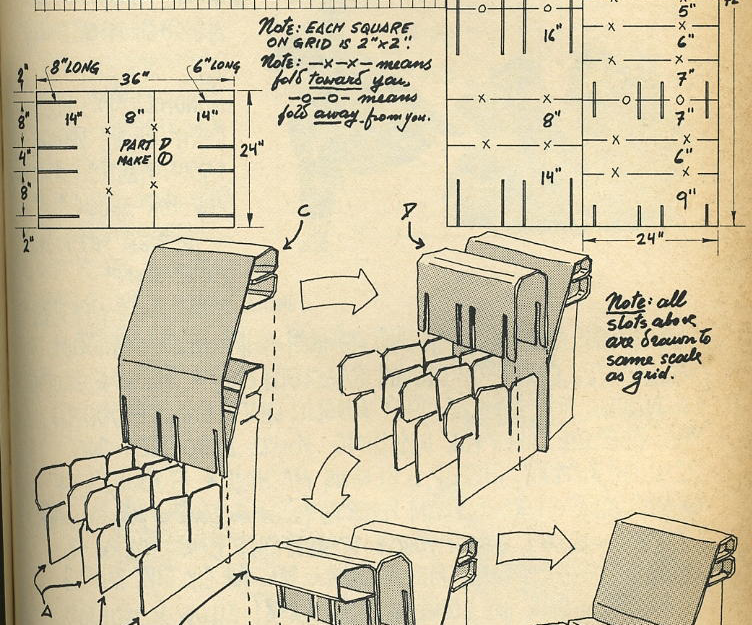 Note: EACH SQUARE
ON GRID IS 2"x2".
Note: —x—x— means
fold toward you,
—o—o— means
fold away from you.
8" LONG
36"
6" LONG
2"
8"
4"
8"
2"
14"
8"
14"
PART D
MAKE ①
24"
16"
8"
14"
5"
6"
7"
7"
6"
9"
24"
C
D
Note: all
slots above
are drawn to
same scale
as grid.
A